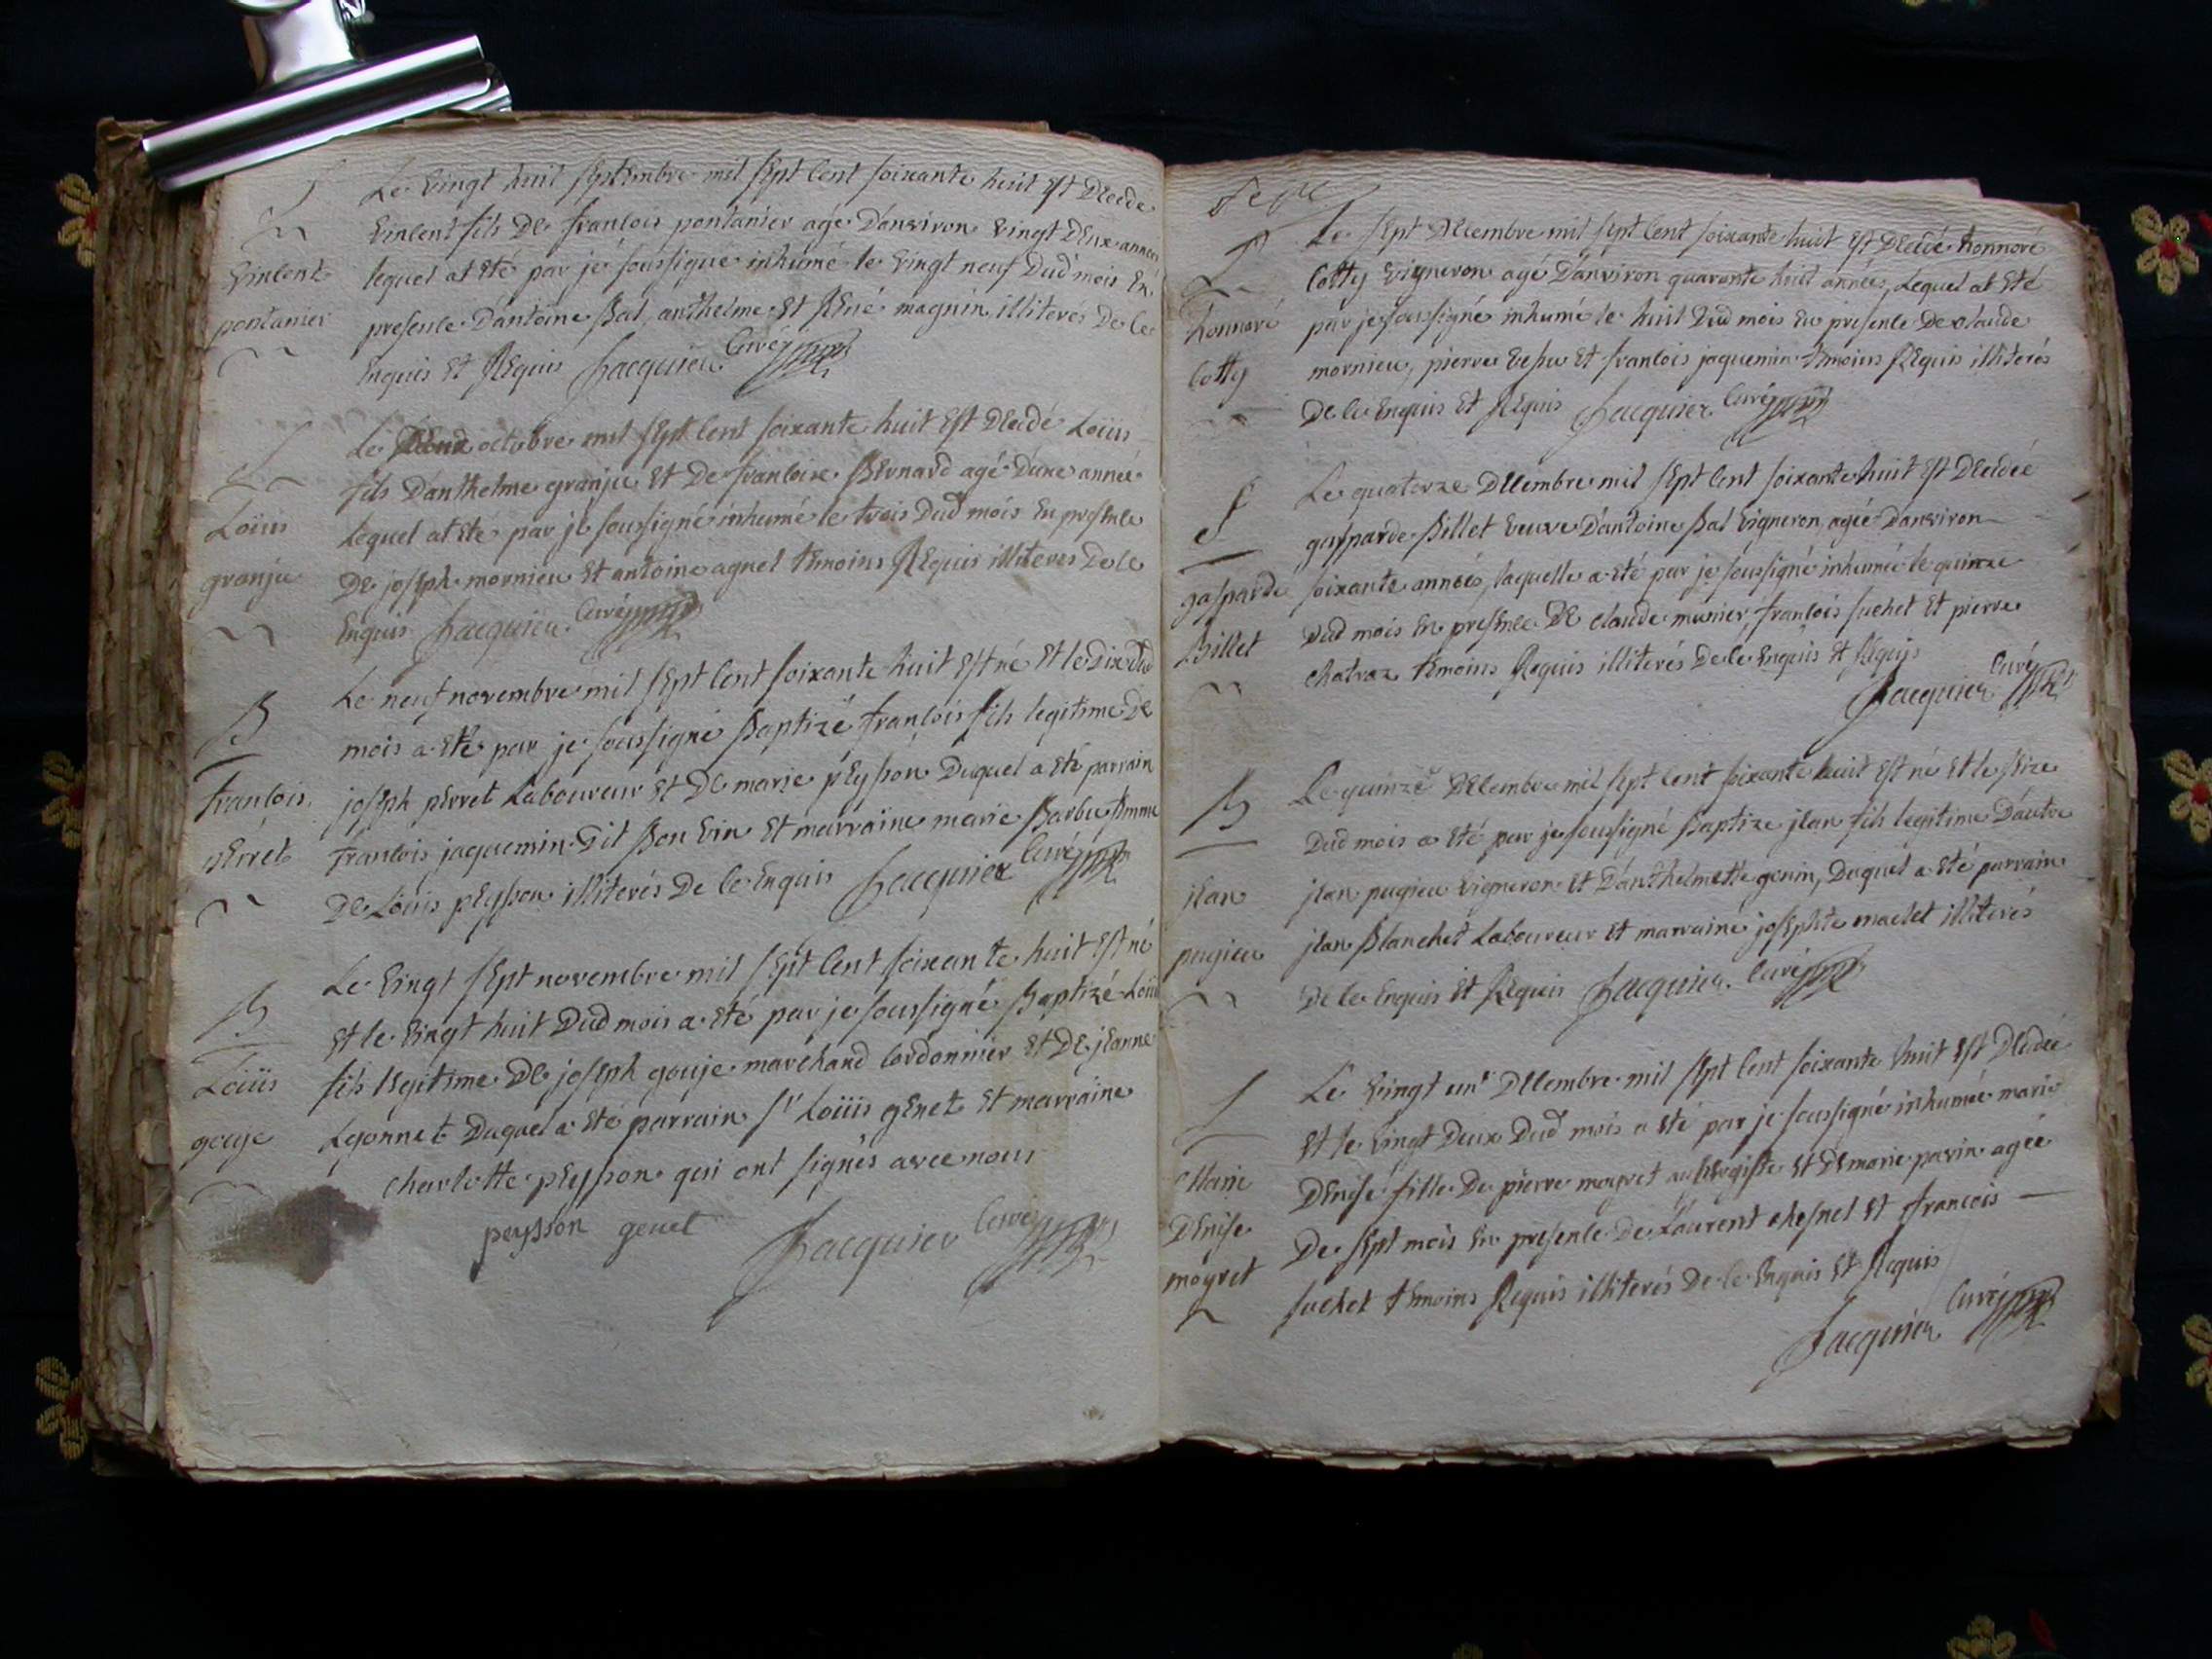 Le vingt huit septembre mil sept cent soixante huit est decedé
vincent fils de francois pontanier agé d'anviron vingt deux années
lequel at eté par je soussigné inhumé le vingt neuf dud mois en
presence d'antoine Bal, anthelme et René magnin illiterés de ce
enquis et Requis Jacquier Curé
vincent
pontanier
Le deux octobre mil sept cent soixante huit est decedé Loüis
fils d'anthelme granju et de francoise Bernard agé d'une année
Lequel at eté par je soussigné inhumé le trois dud mois en presence
De joseph mornieu et antoine agnel temoins Requis illiteres de ce
enquis Jacquier Curé
Loüis
granju
B
Le neuf novembre mil sept cent soixante huit est né et le dix dud
mois a eté par je soussigné Baptizé francois fils legitime de
joseph perret Laboureur et de marie peysson duquel a eté parrain
francois jaquemin dit Bon vin et marraine marie Barbu femme
de Loüis peysson illiterés de ce enquis Jacquier Curé
francois
perret
B
Le vingt sept novembre mil sept cent soixante huit est né
et le vingt huit dud mois a eté par je soussigné Baptizé Loüis
fils legitime de joseph gouje marchand cordonnier et de jeanne
Lyonnet duquel a eté parrain sr Loüis genet et marraine
charlotte peysson qui ont signés avec nous
Loüis
gouje
peysson genet Jacquier Curé
Le sept decembre mil sept cent soixante huit est decedé honnoré
Cotty vigneron agé d'anviron quarante huit années, Lequel at eté
par je soussigné inhumé le huit dud mois en presence de claude
mornieu, pierre et francois jaquemin temoins Requis illiterés
De ce enquis et Requis Jacquier Curé
honnoré
Cotty
Le quatorze decembre mil sept cent soixante huit est decedée
gasparde Billet veuve d'antoine Bal vigneron agée d'anviron
soixante années, laquelle a eté par je soussigné inhumée le quinze
dud mois en presence de claude munier, francois suchet et pierre
chatraz temoins Requis illiterés de ce enquis et Requis
Jacquier Curé
gasparde
Billet
B
Le quinze decembre mil sept cent soixante huit est né et le seize
dud mois a eté par je soussigné Baptize jean fils legitime d'autre
jean pugieu vigneron et d'anthelmette genin, duquel a eté parrain
jean Blanchet Laboureur et marraine josephte maclet illiterés
De ce enquis et Requis Jacquier Curé
jean
pugieu
Le vingt un decembre mil sept cent soixante huit est decedée
et le vingt deux dud mois a eté par je soussigné inhumée marie
Denise fille de pierre mogret aubergiste et de marie pavin agée
De sept mois en presence de Laurent chesnel et francois
suchet temoins Requis illiterés de ce enquis et Requis
Jacquier Curé
Marie
Denise
mogret